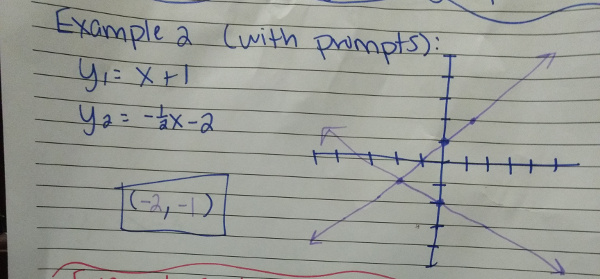 Example 2 (with prompts):
y₁ = x + 1
y₂ = -½x - 2
(-2, -1)